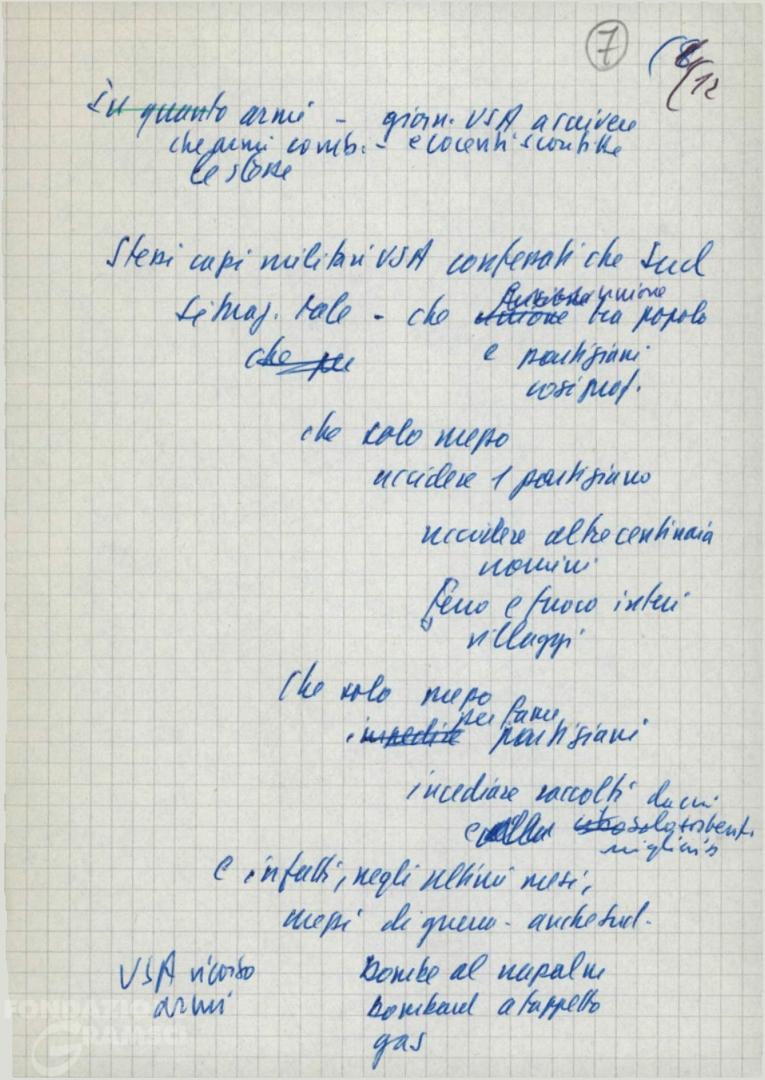 7
8/12
In quanto armi - giorn. USA a scrivere
che armi comb. - e cocenti sconfitte
le stesse
Stessi capi militari USA confessati che Sud
si mag. tale - che unione tra popolo
che
e partigiani
così prof.
che solo mezzo
uccidere 1 partigiano
uccidere altre centinaia
uomini
ferro e fuoco interi
villaggi
Che solo mezzo
per fame
impedire partigiani
incediare raccolti da cui
e solo
migliaia
E infatti, negli ultimi mesi,
mezzi di guerra - anche Sud.
USA ricorso Bombe al napalm
armi Bombard a tappeto
gas
FONDAZIONE
GRAMSCI